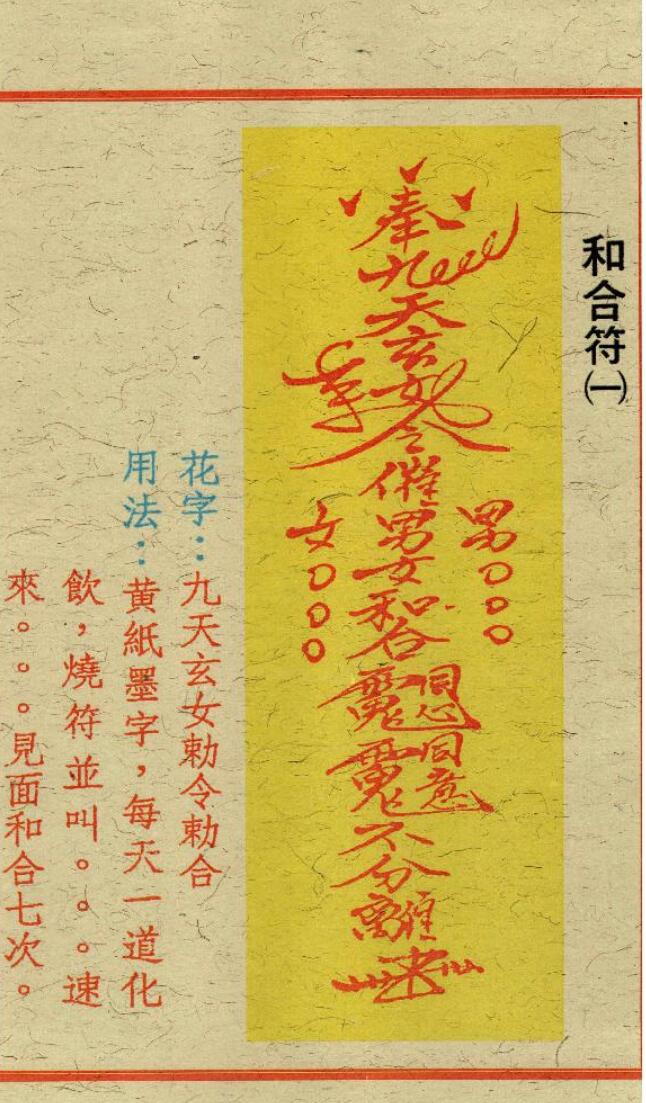 和合符㈠
男○○○
奉九天玄女令催男女和合同心同意不分離
女○○○
花字：九天玄女勅令勅合
用法：黃紙墨字，每天一道化
飲，燒符並叫。。。速
來。。。見面和合七次。